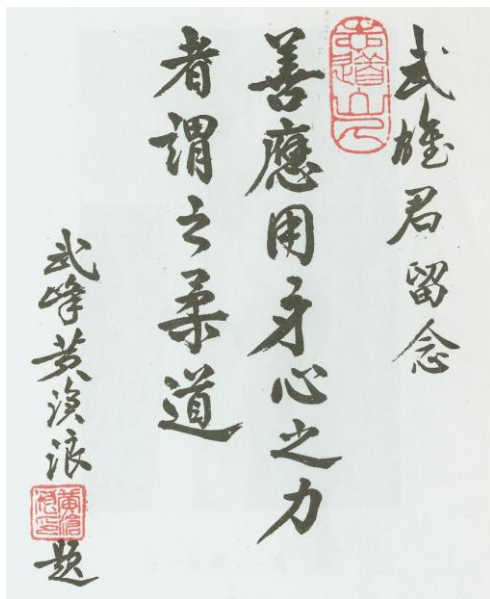 武雄君留念
善應用身心之力
者謂之柔道
武峰黃滄浪
黃滄浪印
題